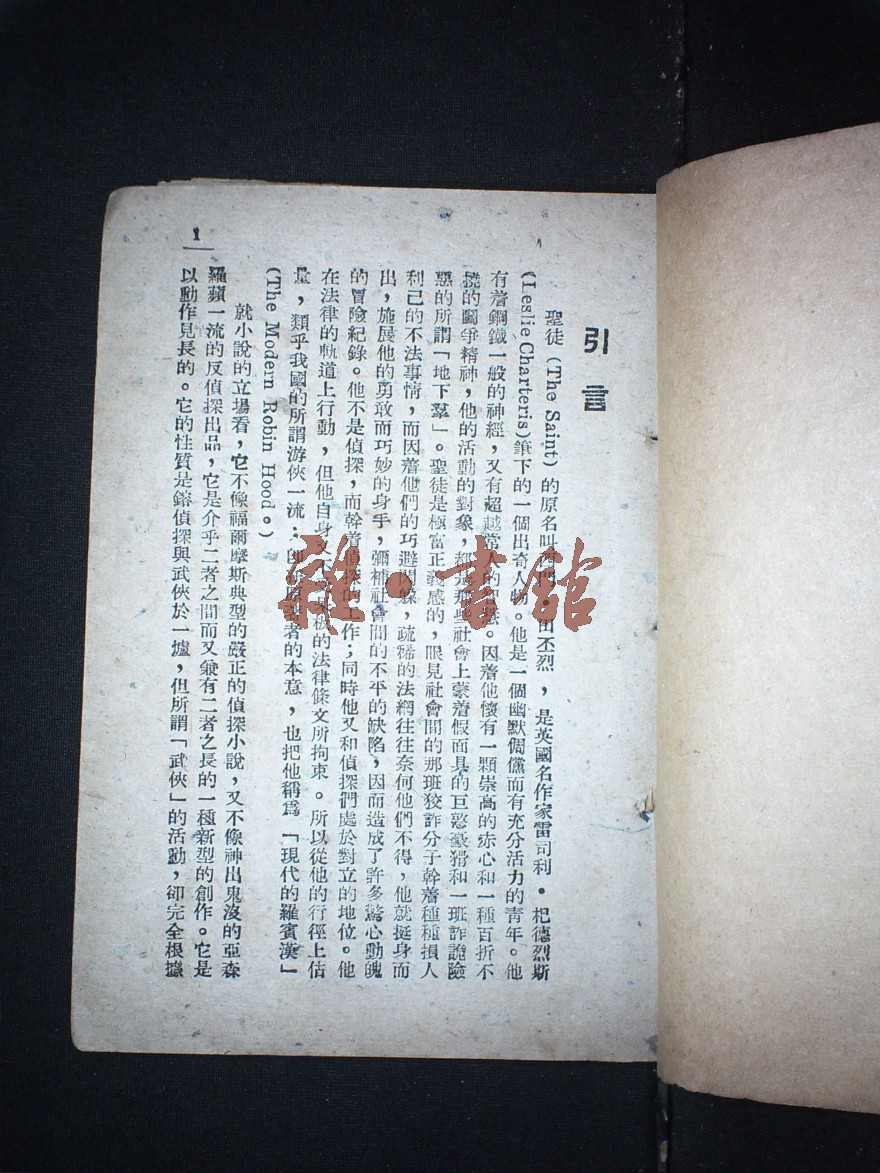 引言
聖徒(The Saint)的原名叫西門田丕烈,是英國名作家雷司利•杞德烈斯
(Leslie Charteris)筆下的一個出奇人物。他是一個幽默倜儻而有充分活力的青年。他
有着鋼鐵一般的神經,又有超越常人的。因着他懷有一顆崇高的赤心和一種百折不
撓的鬭爭精神,他的活動的對象,都是那些社會上蒙着假面具的巨憝豪猾和一班詐詭險
惡的所謂「地下羣」。聖徒是極富正義感的,眼見社會間的那班狡詐分子幹着種種損人
利己的不法事情,而因着他們的巧避閃躲,疏稀的法網往往奈何他們不得,他就挺身而
出,施展他的勇敢而巧妙的身手,彌補社會間的不平的缺陷,因而造成了許多驚心動魄
的冒險紀錄。他不是偵探,而幹着偵探的工作;同時他又和偵探們處於對立的地位。他
在法律的軌道上行動,但他自身又不板的法律條文所拘束。所以從他的行徑上估
量,類乎我國的所謂游俠一流;即在原著者的本意,也把他稱爲「現代的羅賓漢」
(The Modern Robin Hood。)
就小說的立場看,它不像福爾摩斯典型的嚴正的偵探小說,又不像神出鬼沒的亞森
羅蘋一流的反偵探出品,它是介乎二者之間而又兼有二者之長的一種新型的創作。它是
以動作見長的。它的性質是鎔偵探與武俠於一爐,但所謂「武俠」的活動,卻完全根據
1
雜•書館